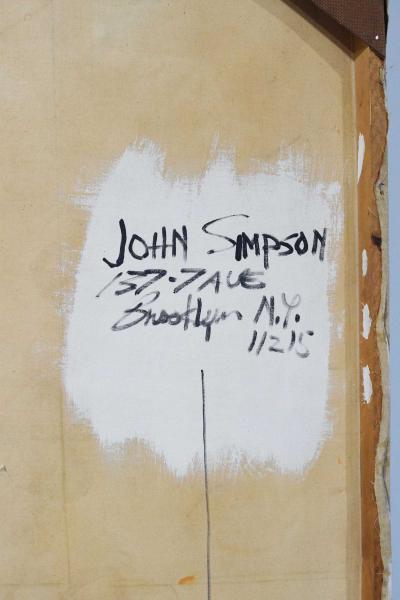 JOHN SIMPSON
157-7 AVE
Brooklyn N.Y.
11215